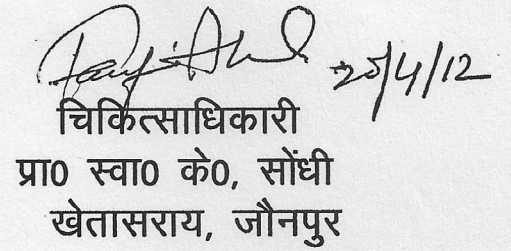 20/4/12
चिकित्साधिकारी
प्रा0 स्वा0 के0, सोंधी
खेतासराय, जौनपुर